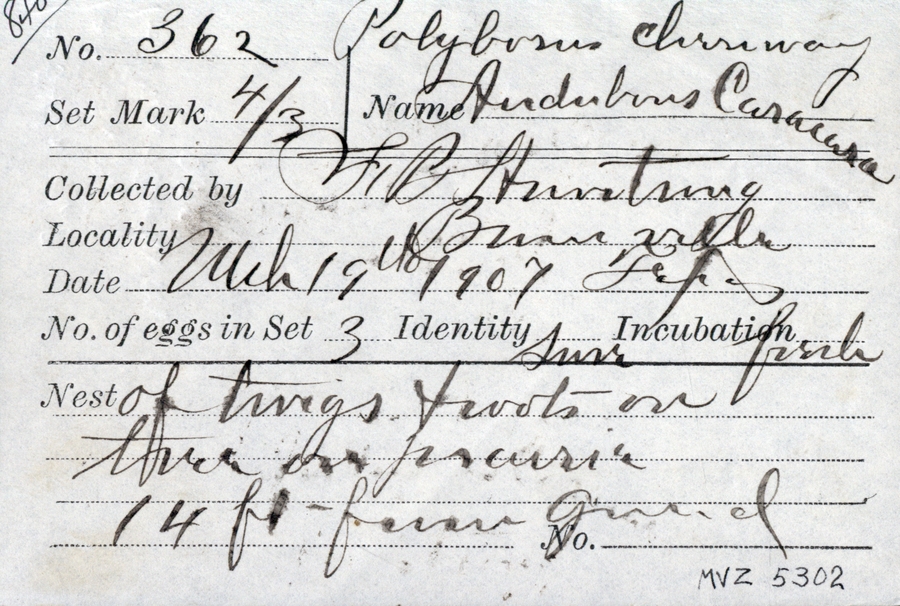 840
No. 362 Polyborus cheriway
Set Mark 4/3 Name Audubons Caracara
Collected by F B Armstrong
Locality Brownsville
Date Mch 19th 1907 Texas
No. of eggs in Set 3 Identity sure Incubation fresh
Nest of twigs & roots on
tree on prairie
14 ft - from ground
No.
MVZ 5302